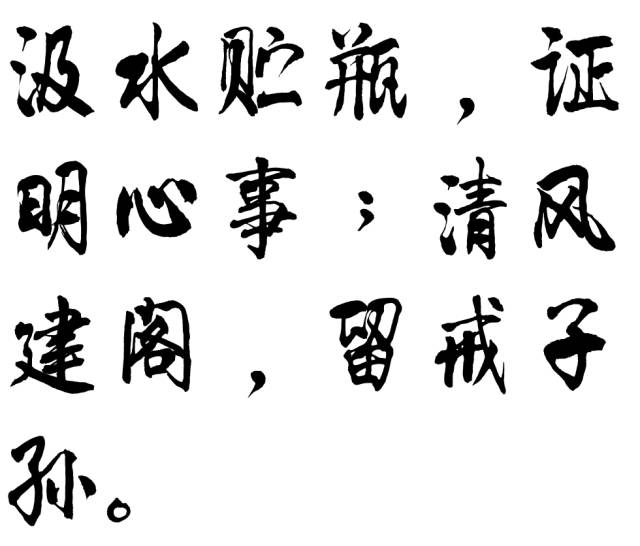 汲水贮瓶，证
明心事；清风
建阁，留戒子
孙。